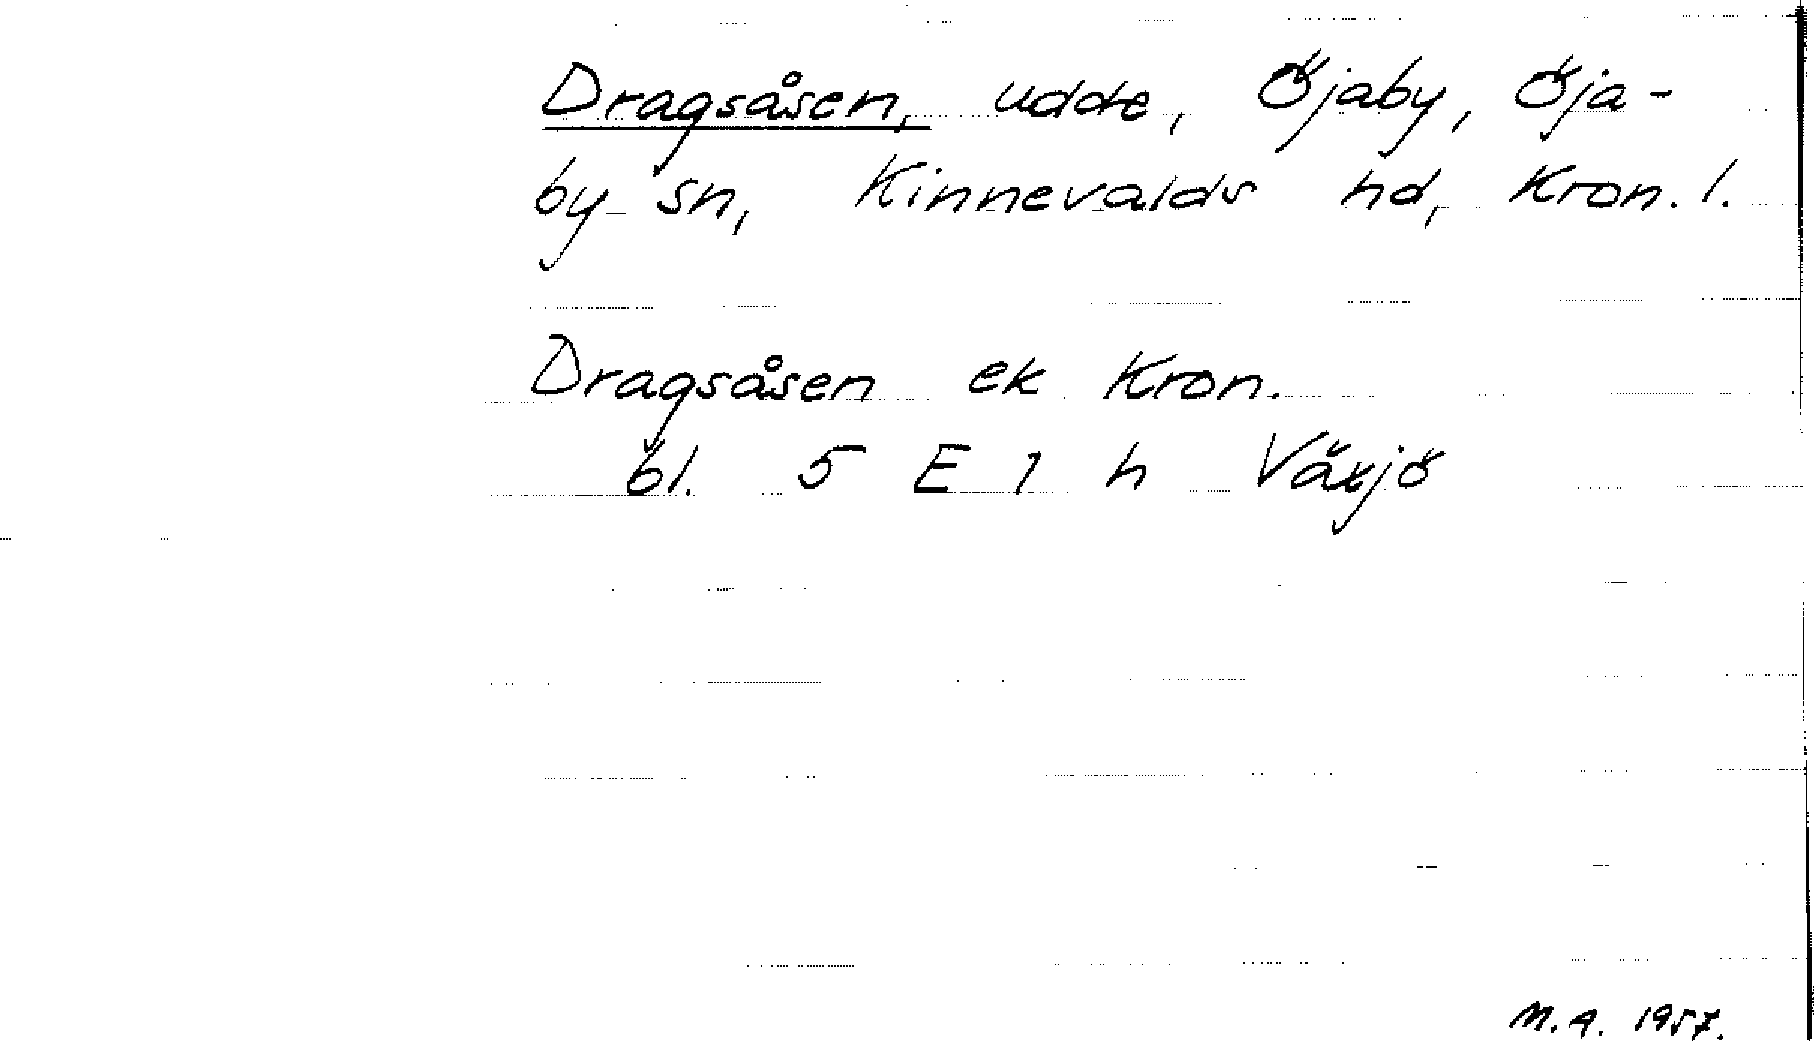 Dragsåsen, udde, Öjaby, Öja-
by sn, Kinnevalds hd, Kron. l.
Dragsåsen ek Kron.
bl. 5 E 1 h Växjö
M.A. 1957.